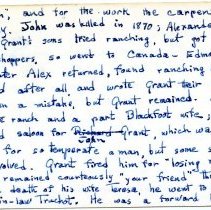 ", and for the work the carpen
y. John was killed in 1870; Alexande
Grant's sons tried ranching, but got
hoppers, so went to Canada - Edmo
ter Alex returned, found ranching
d after all and wrote Grant their
n a mistake, but Grant remained.
e ranch and a part Blackfoot wife;
d saloon for Richard Grant, which wa
John
for so temperate a man, but some s
volved. Grant fired him for "losing
remained courteously "your friend"
death of his wife Teresa, he went to
in-law Truchot. He was a forward